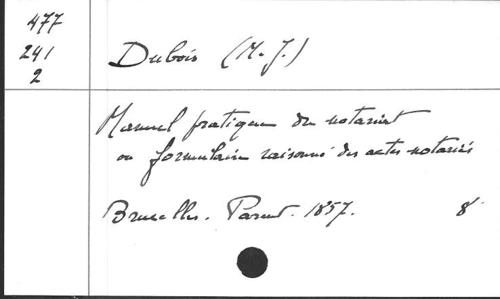 477
241
2
Dubois (M. J.)
Manuel pratique du notariat
ou formulaire raisonné des actes notariés
Bruxelles. Parent. 1857. 8°